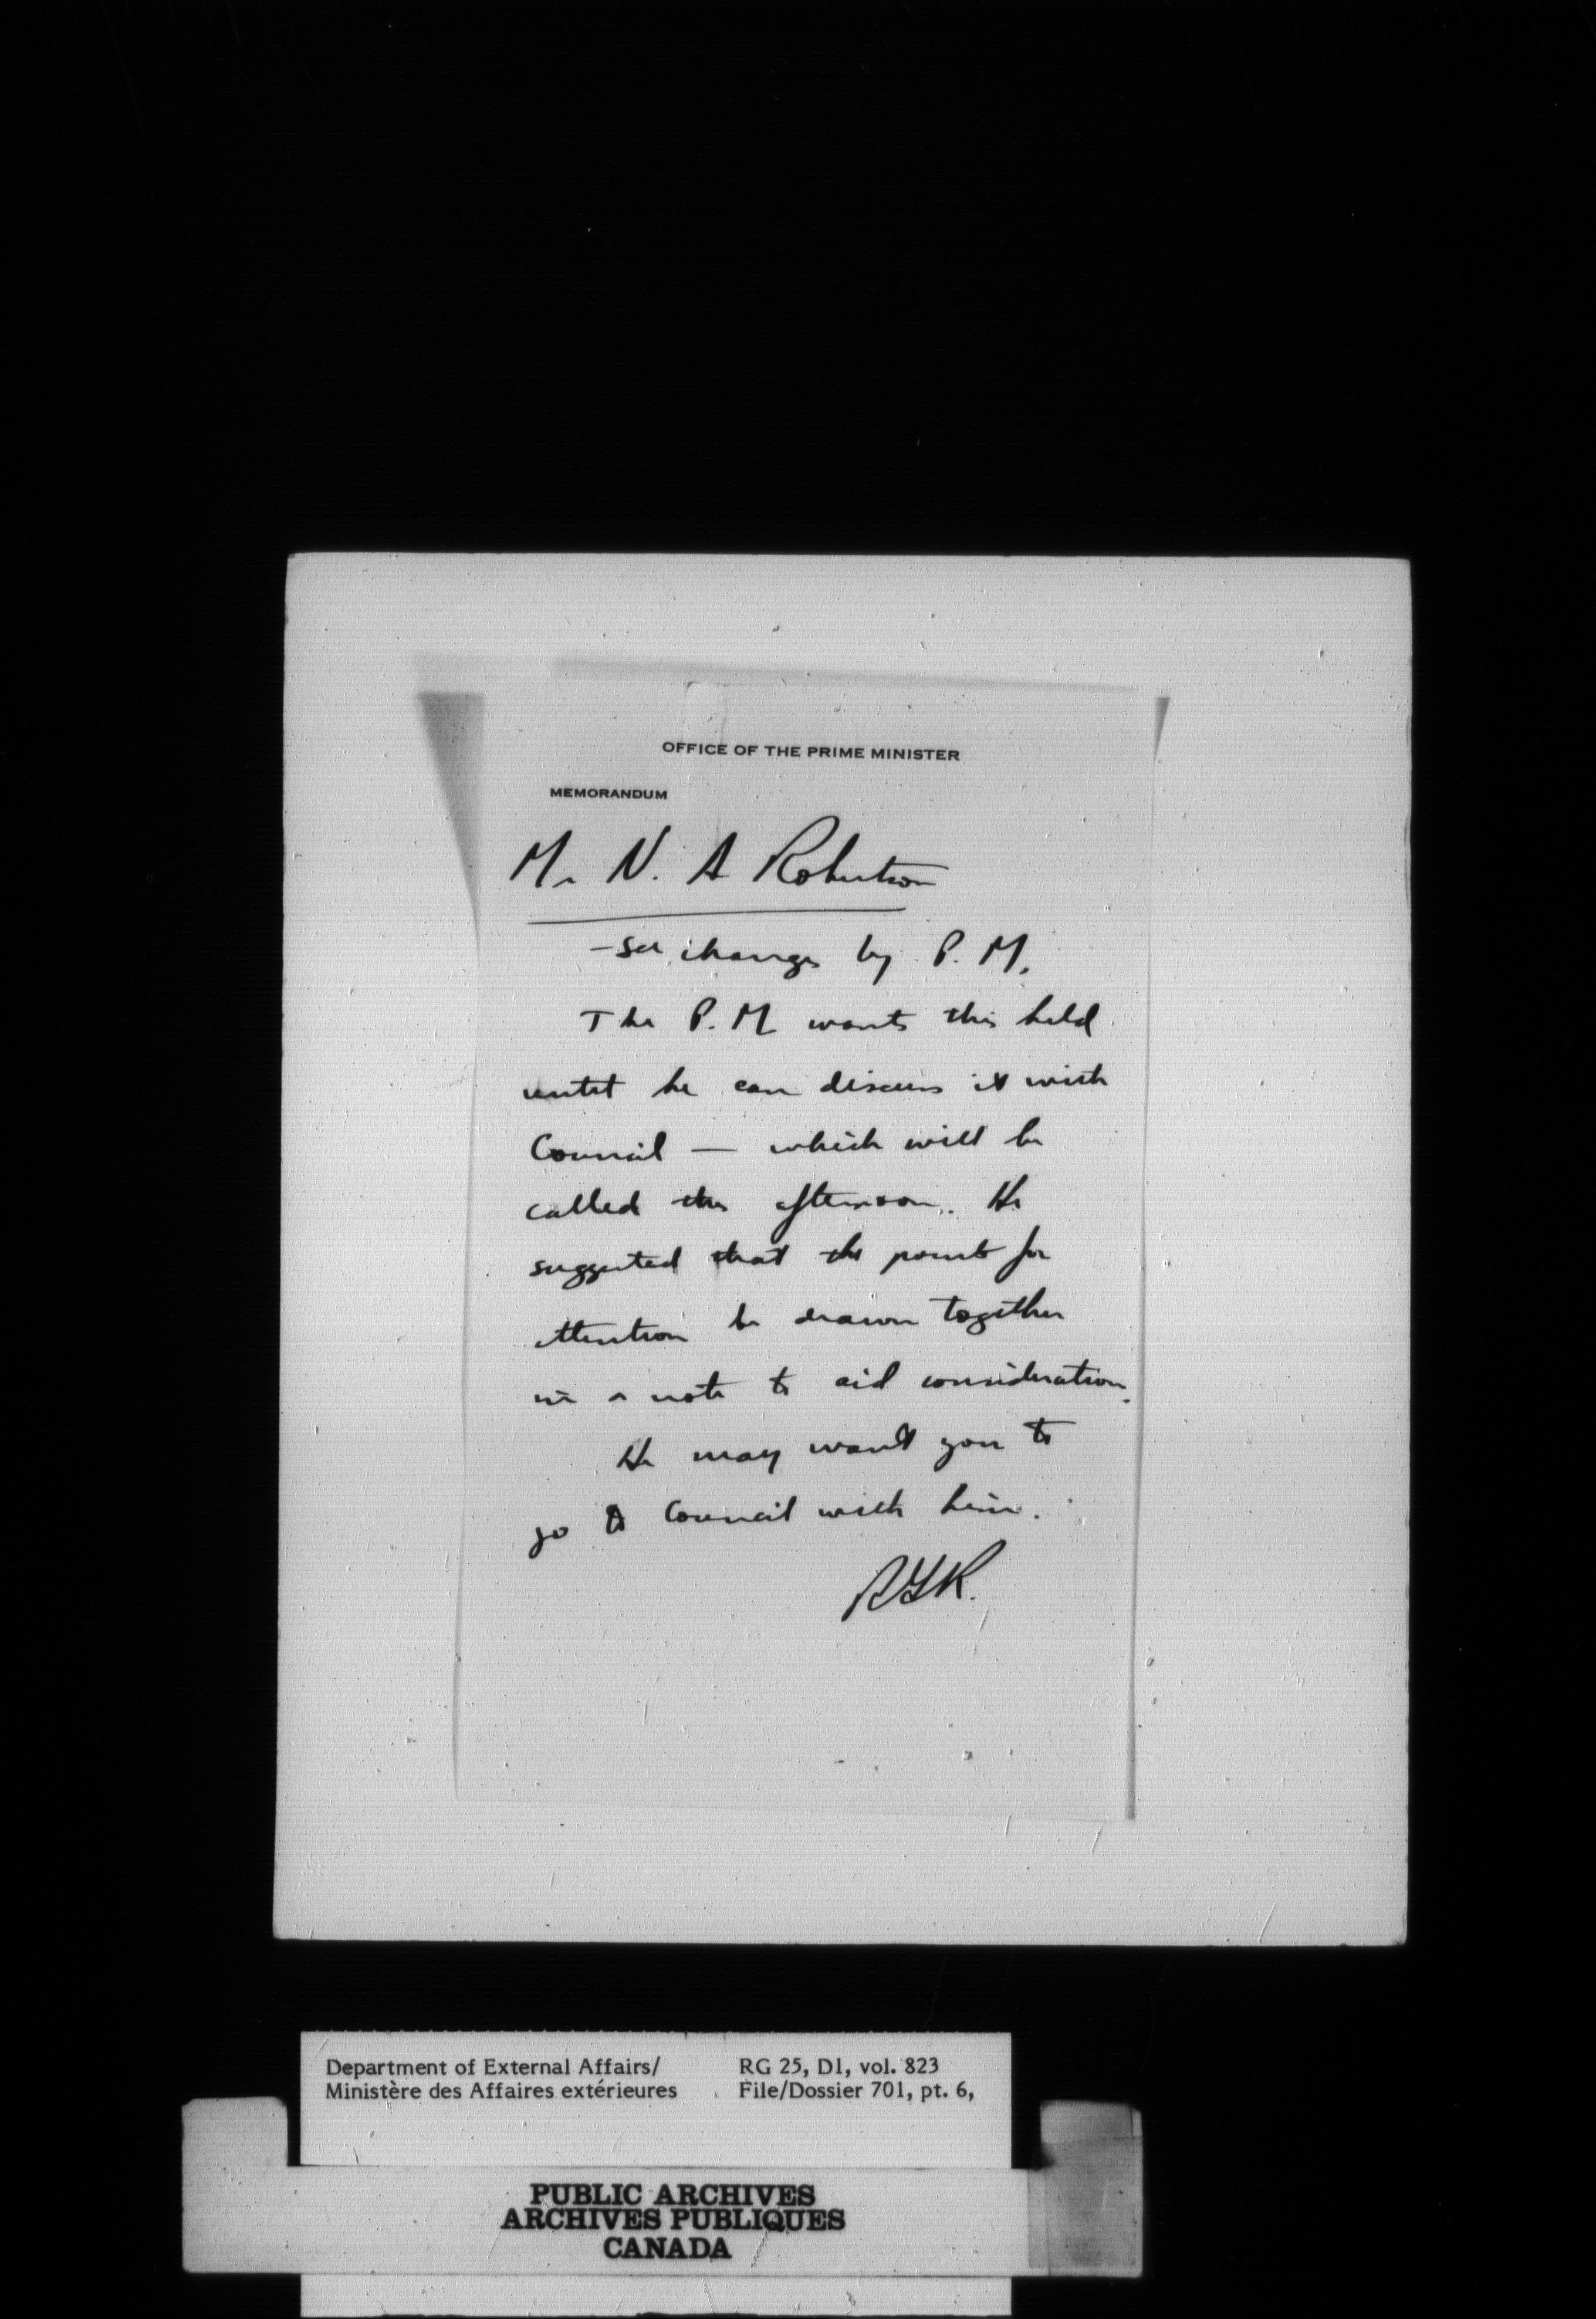 OFFICE OF THE PRIME MINISTER
MEMORANDUM
Mr N. A Robertson
- See changes by P. M.
The P. M wants this held
until he can discuss it with
Council — which will be
called this afternoon. He
suggested that the points for
attention be drawn together
in a note to aid consideration.
He may want you to
go to Council with him.
Department of External Affairs/ RG 25, D1, vol. 823
Ministère des Affaires extérieures File/Dossier 701, pt. 6,
PUBLIC ARCHIVES
ARCHIVES PUBLIQUES
CANADA